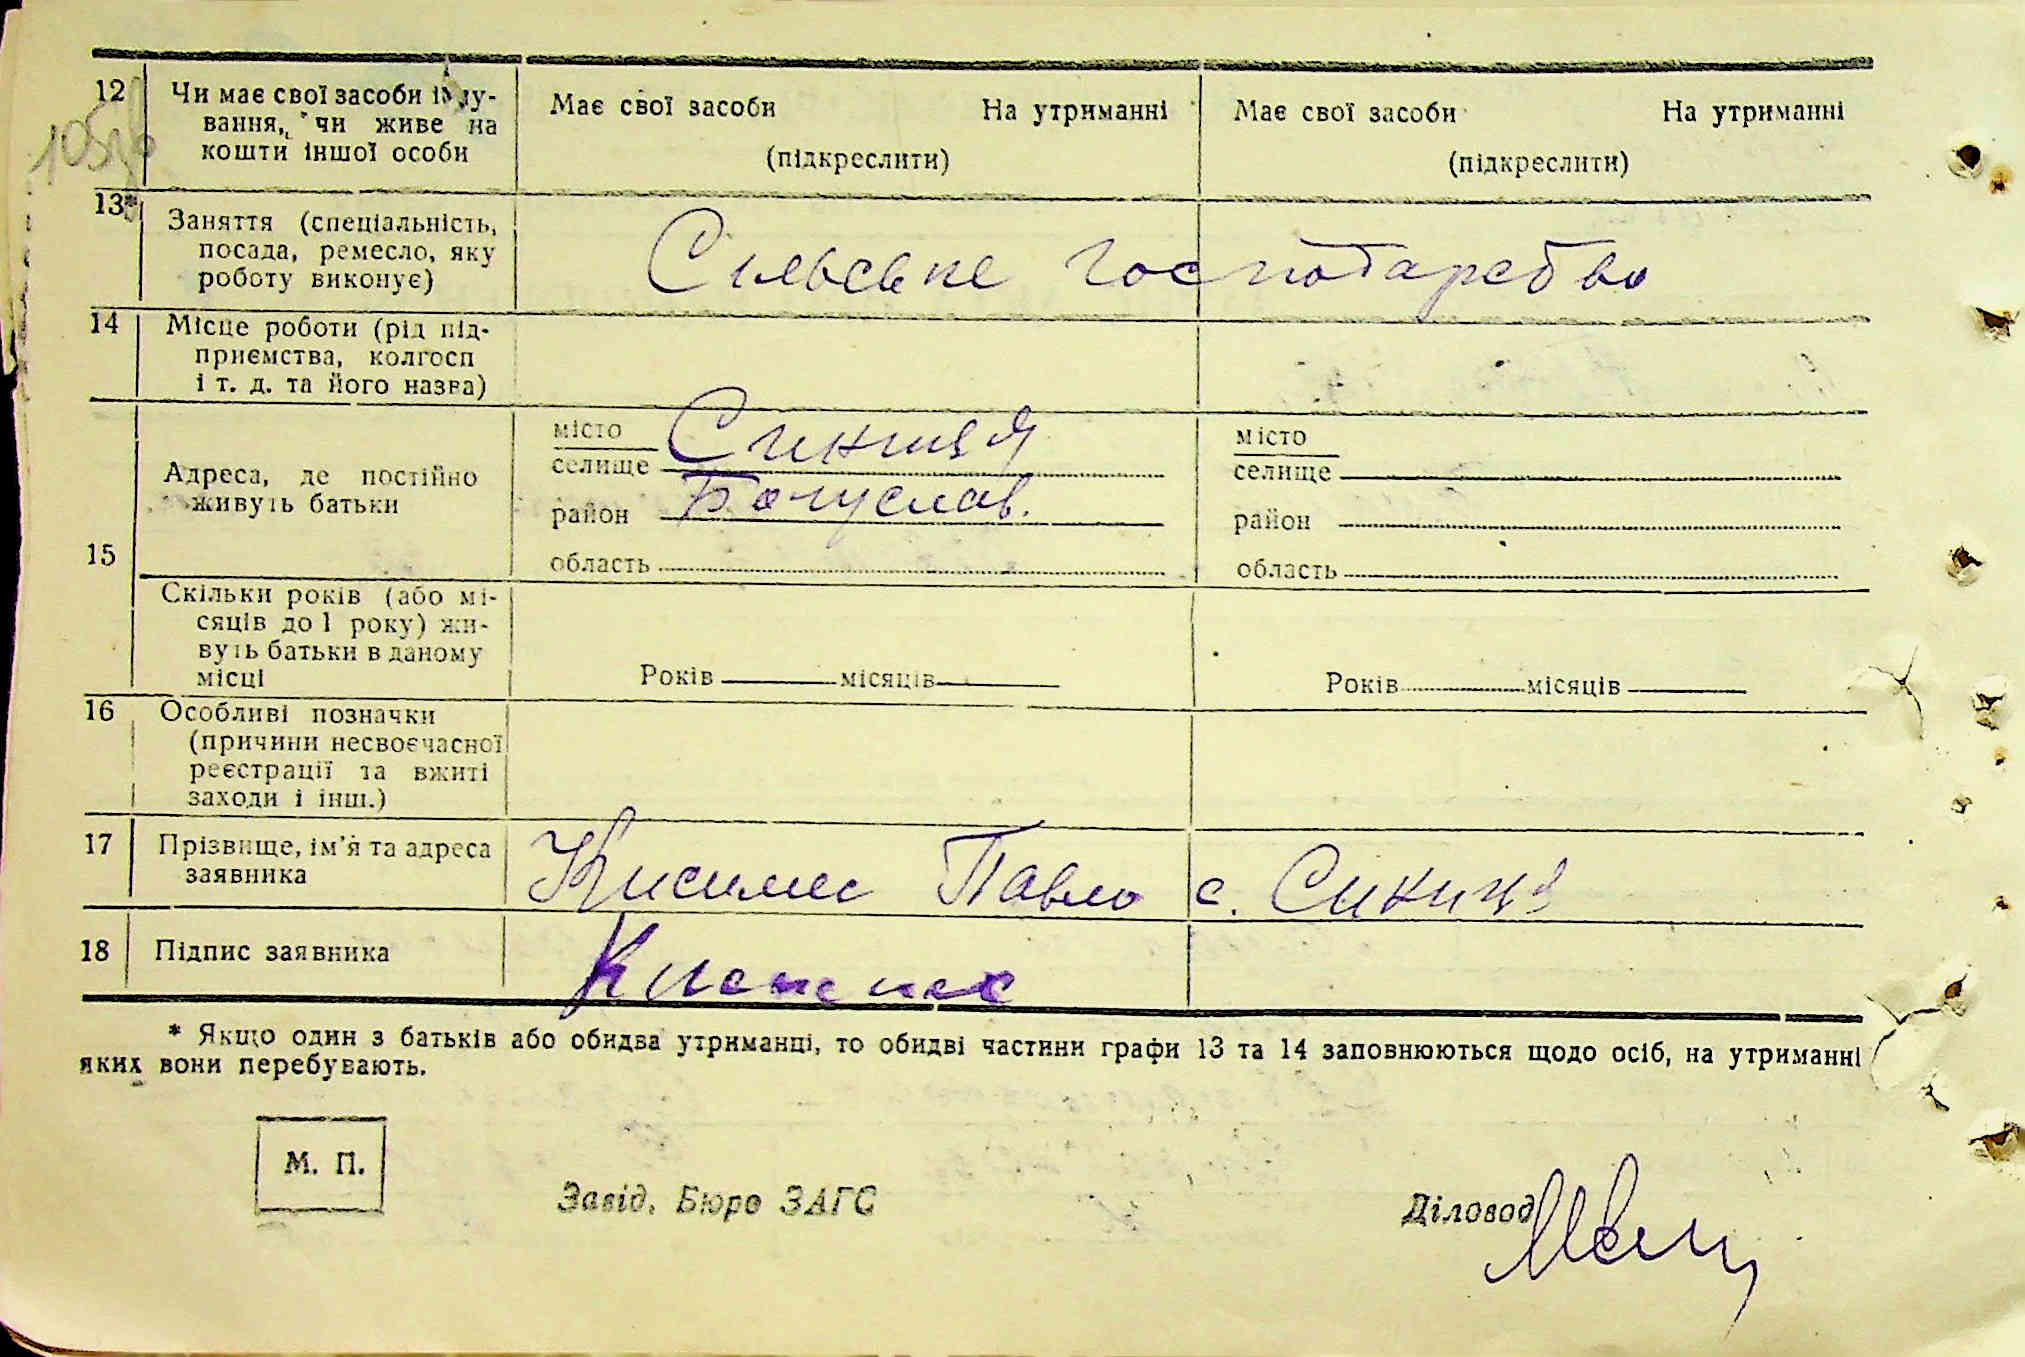 12 Чи має свої засоби існу-
вання, чи живе на
кошти іншої особи
Має свої засоби На утриманні
(підкреслити)
Має свої засоби На утриманні
(підкреслити)
105зв
13* Заняття (спеціальність,
посада, ремесло, яку
роботу виконує)
Сільське господарство
14 Місце роботи (рід під-
приємства, колгосп
і т. д. та його назва)
15 Адреса, де постійно
живуть батьки
місто
селище Синиця
район Богуслав.
область
місто
селище
район
область
Скільки років (або мі-
сяців до 1 року) жи-
вуть батьки в даному
місці
Років місяців
Років місяців
16 Особливі позначки
(причини несвоєчасної
реєстрації та вжиті
заходи і інш.)
17 Прізвище, ім'я та адреса
заявника
Павло с. Синиця
18 Підпис заявника
* Якщо один з батьків або обидва утриманці, то обидві частини графи 13 та 14 заповнюються щодо осіб, на утриманні
яких вони перебувають.
М. П.
Завід. Бюро ЗАГС
Діловод